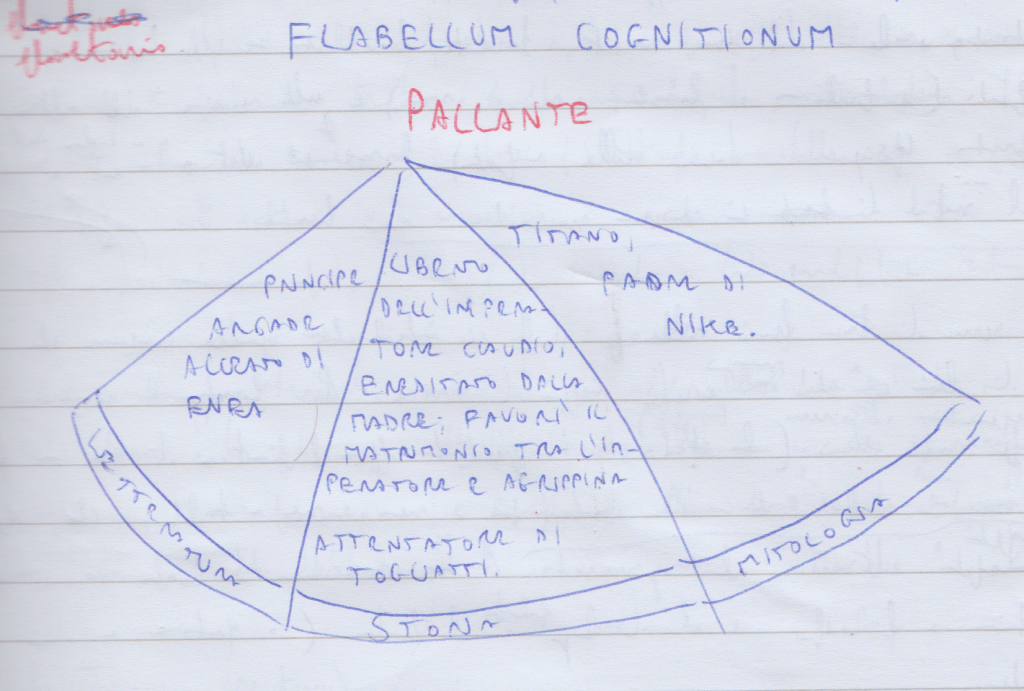 FLABELLUM COGNITIONUM
PALLANTE
PRINCIPE
ARCADE
ALLEATO DI
ENEA
LETTERATURA
LIBERTO
DELL'IMPERA-
TORE CLAUDIO,
EREDITATO DALLA
MADRE; FAVORÌ IL
MATRIMONIO TRA L'IM-
PERATORE E AGRIPPINA
ATTENTATORE DI
TOGLIATTI.
STORIA
TITANO,
PADRE DI
NIKE.
MITOLOGIA